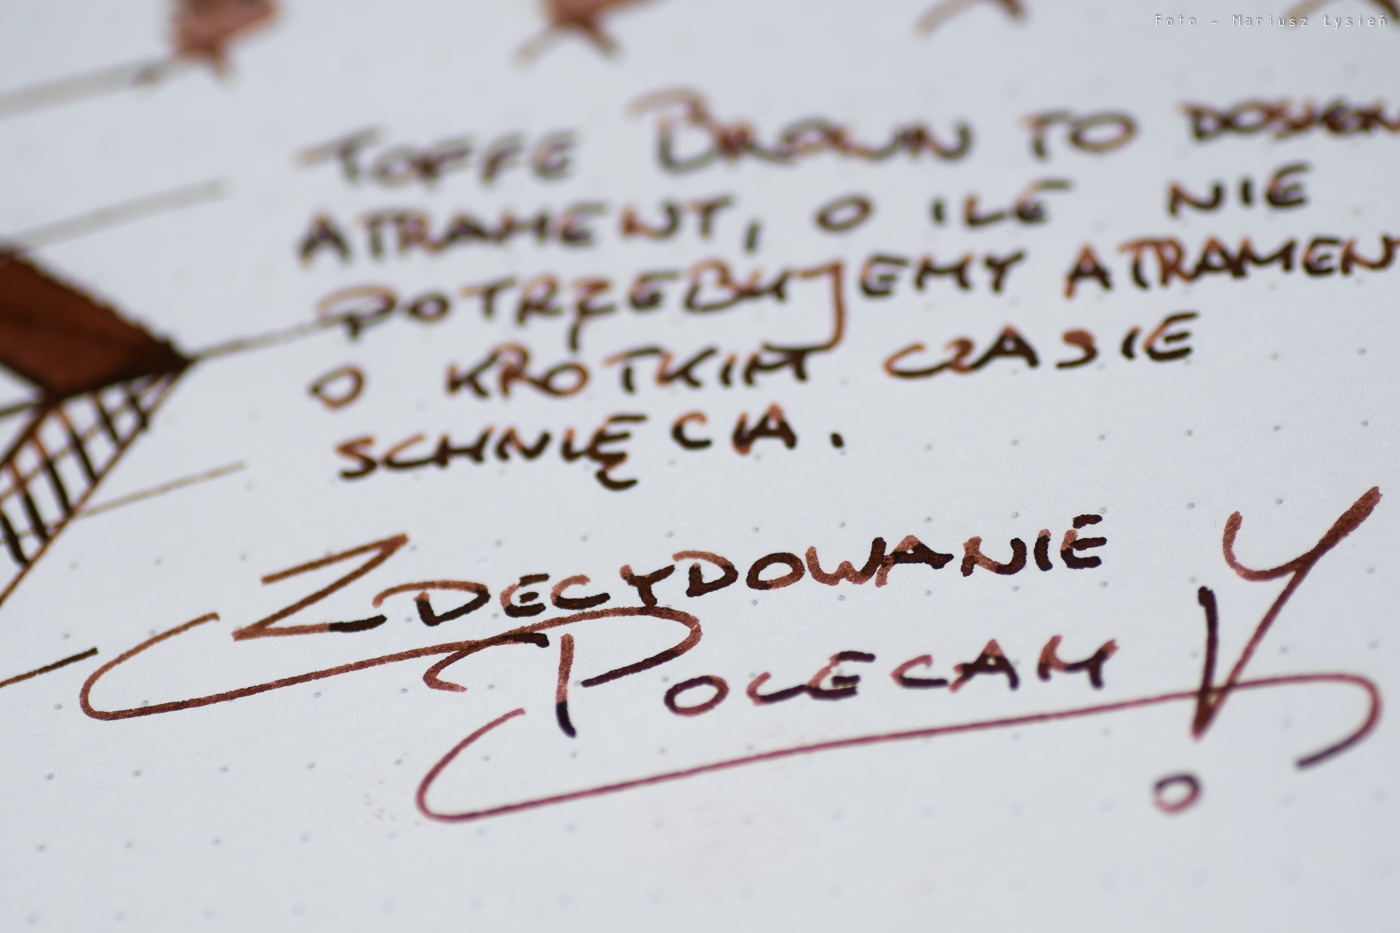 Foto - Mariusz Łysień
TOFFE BROWN TO
ATRAMENT, O ILE NIE
POTRZEBUJEMY ATRAMEN
O KROTKIM CZASIE
SCHNIĘCIA.
ZDECYDOWANIE
POLECAM!